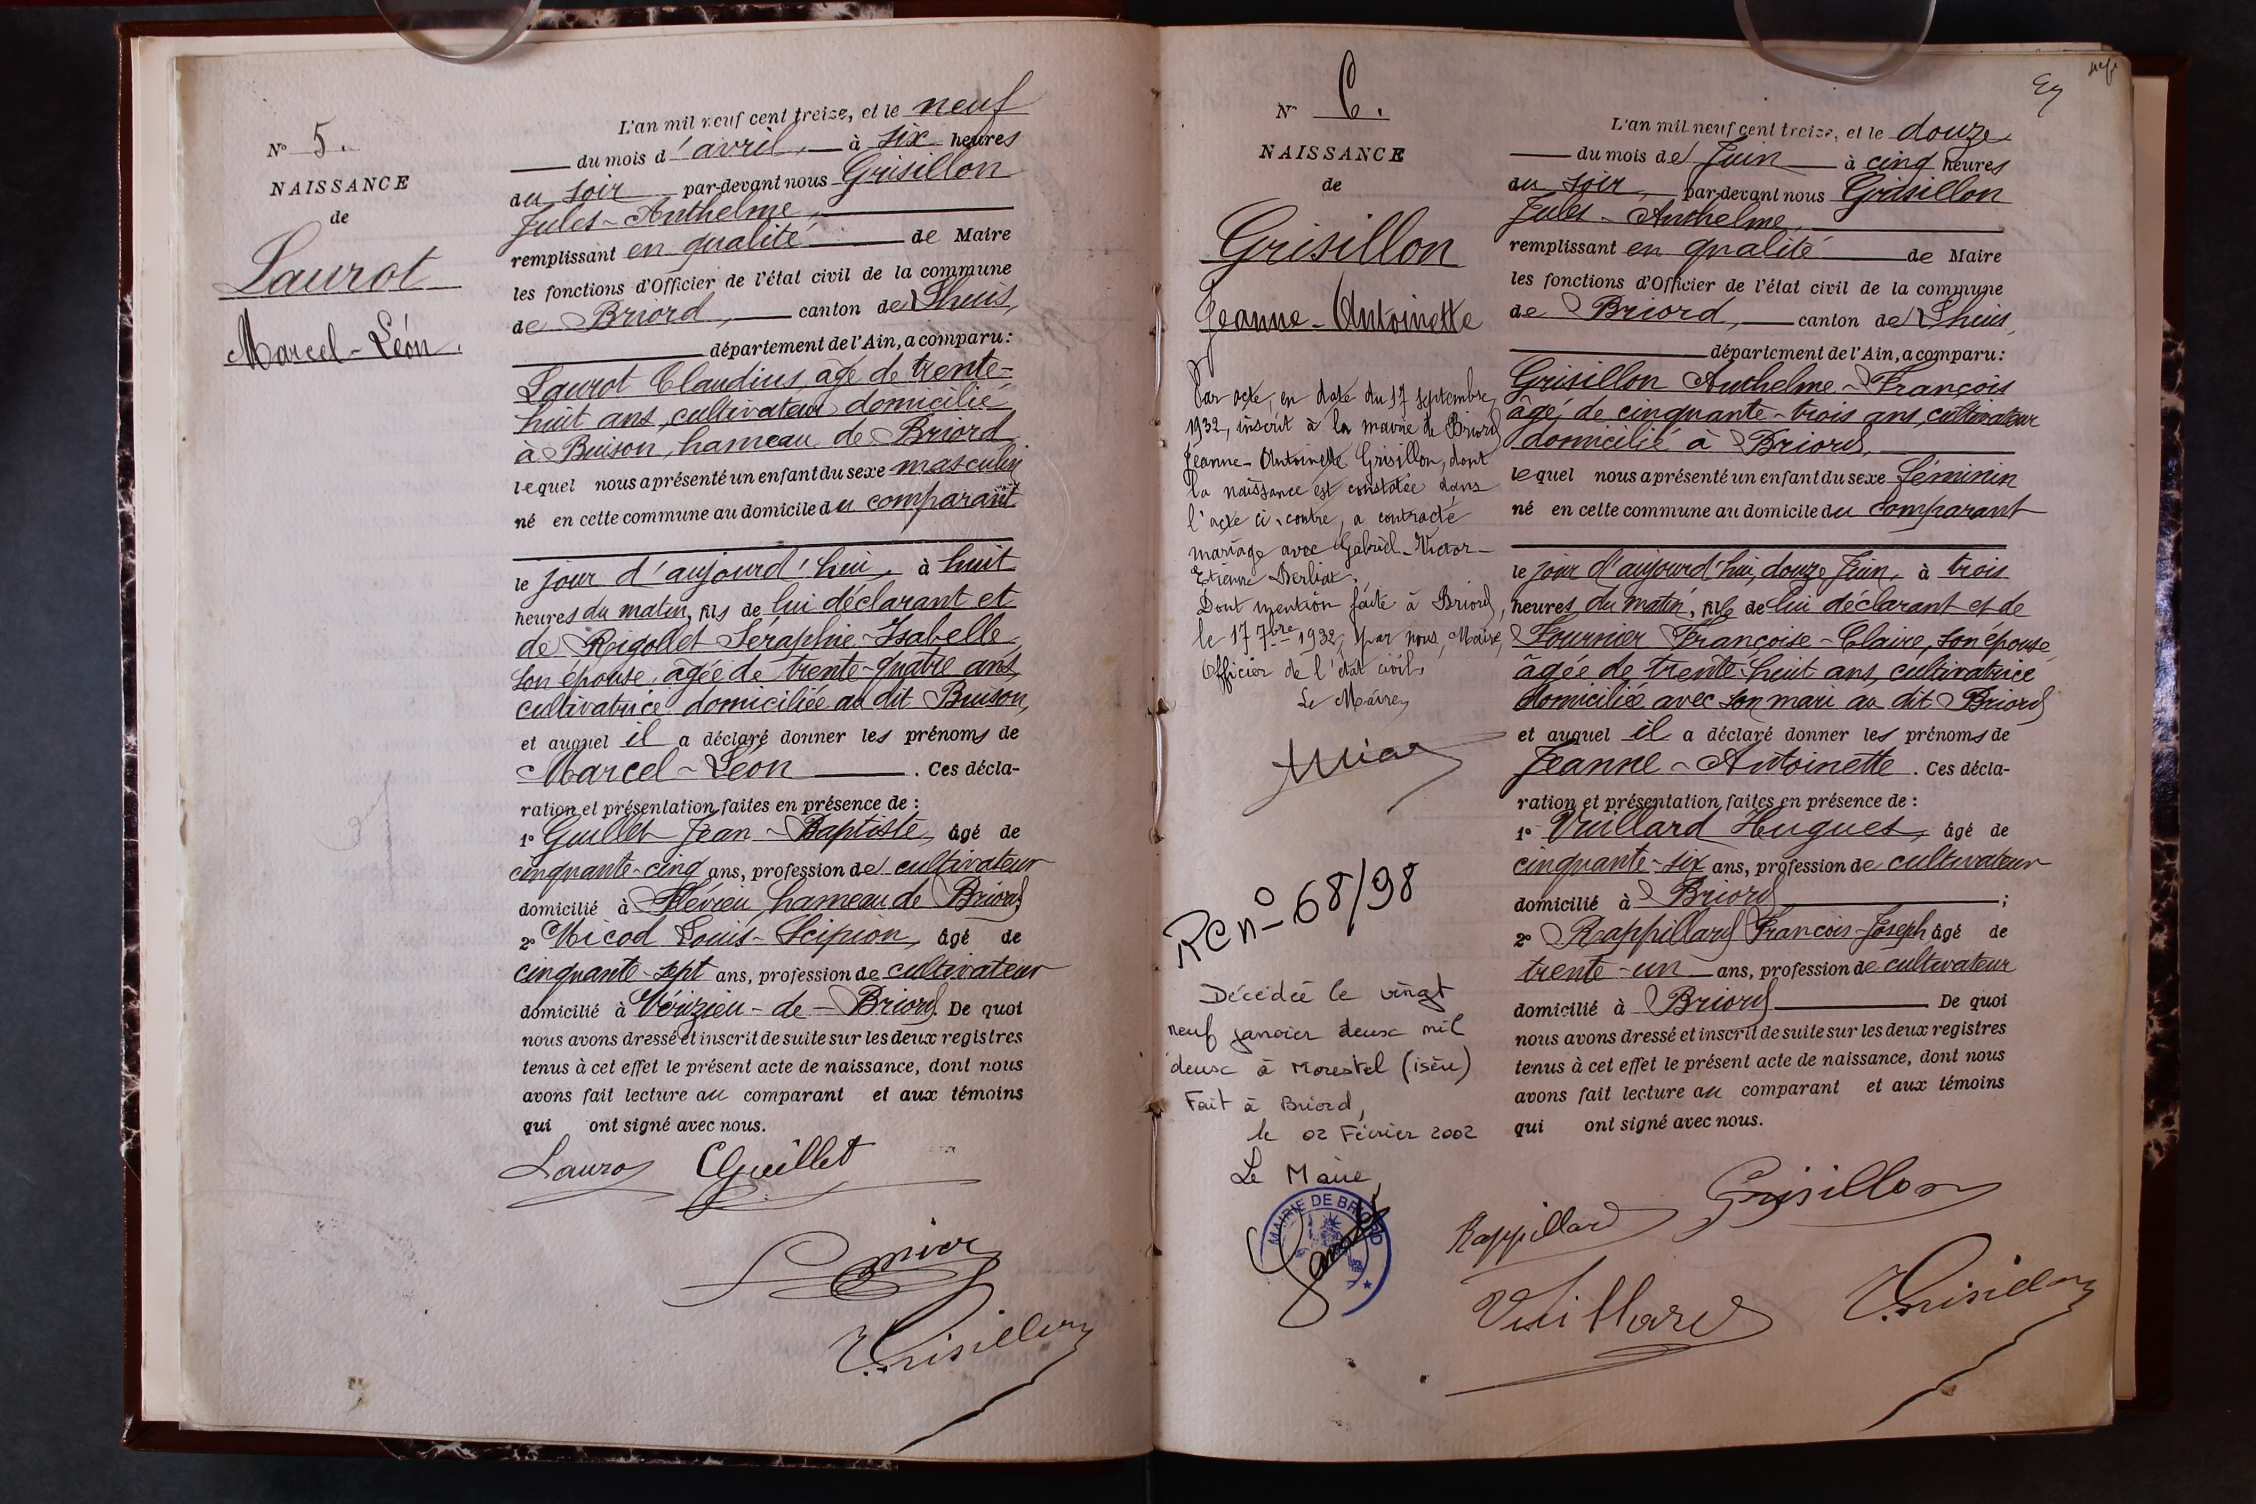 N° 5.
NAISSANCE
de
Laurot
Marcel-Léon.
L'an mil neuf cent treize, et le neuf
du mois d'avril, à six heures
du soir par-devant nous Grisillon
Jules-Anthelme,
remplissant en qualité de Maire
les fonctions d'Officier de l'état civil de la commune
de Briord, canton de Lhuis,
département de l'Ain, a comparu:
Laurot Claudius âgé de trente-
huit ans, cultivateur domicilié
à Buison, hameau de Briord
lequel nous a présenté un enfant du sexe masculin
né en cette commune au domicile du comparant
le jour d'aujourd'hui, à huit
heures du matin, fils de lui déclarant et
de Rigollet Séraphie-Isabelle
son épouse, âgée de trente-quatre ans,
cultivatrice domiciliée au dit Buison,
et auquel il a déclaré donner les prénoms de
Marcel-Léon. Ces décla-
ration et présentation faites en présence de :
1° Guillet Jean-Baptiste, âgé de
cinquante-cinq ans, profession de cultivateur
domicilié à Flévieu hameau de Briord
2° Micod Louis-Scipion, âgé de
cinquante-sept ans, profession de cultivateur
domicilié à Vérizieu-de-Briord. De quoi
nous avons dressé et inscrit de suite sur les deux registres
tenus à cet effet le présent acte de naissance, dont nous
avons fait lecture au comparant et aux témoins
qui ont signé avec nous.
Laurot Guillet
Grisillon
N° 6.
NAISSANCE
de
Grisillon
Jeanne-Antoinette
Par acte, en date du 17 septembre
1932, inscrit à la mairie de Briord
Jeanne-Antoinette Grisillon, dont
la naissance est constatée dans
l'acte ci-contre, a contracté
mariage avec Gabriel-Victor-
Etienne Derliaz.
Dont mention faite à Briord,
le 17 7bre 1932, par nous, Maire,
Officier de l'état civil,
Le Maire,
RC n° 68/98
Décédée le vingt
neuf janvier deux mil
deux à Morestel (isère)
Fait à Briord,
le 02 Février 2002
Le Maire,
MAIRIE DE BRIORD
L'an mil neuf cent treize, et le douze
du mois de Juin à cinq heures
du soir, par-devant nous Grisillon
Jules-Anthelme,
remplissant en qualité de Maire
les fonctions d'Officier de l'état civil de la commune
de Briord, canton de Lhuis,
département de l'Ain, a comparu:
Grisillon Anthelme-François
âgé de cinquante-trois ans, cultivateur
domicilié à Briord,
lequel nous a présenté un enfant du sexe féminin
né en cette commune au domicile du comparant
le jour d'aujourd'hui, douze Juin, à trois
heures du matin, fille de lui déclarant et de
Fournier Françoise-Claire, son épouse
âgée de trente-huit ans, cultivatrice
domiciliée avec son mari au dit Briord
et auquel il a déclaré donner les prénoms de
Jeanne-Antoinette. Ces décla-
ration et présentation faites en présence de :
1° Vuillard Hugues, âgé de
cinquante-six ans, profession de cultivateur
domicilié à Briord ;
2° Rappillard François-Joseph âgé de
trente-un ans, profession de cultivateur
domicilié à Briord De quoi
nous avons dressé et inscrit de suite sur les deux registres
tenus à cet effet le présent acte de naissance, dont nous
avons fait lecture au comparant et aux témoins
qui ont signé avec nous.
Rappillard Grisillon
Vuillard Grisillon